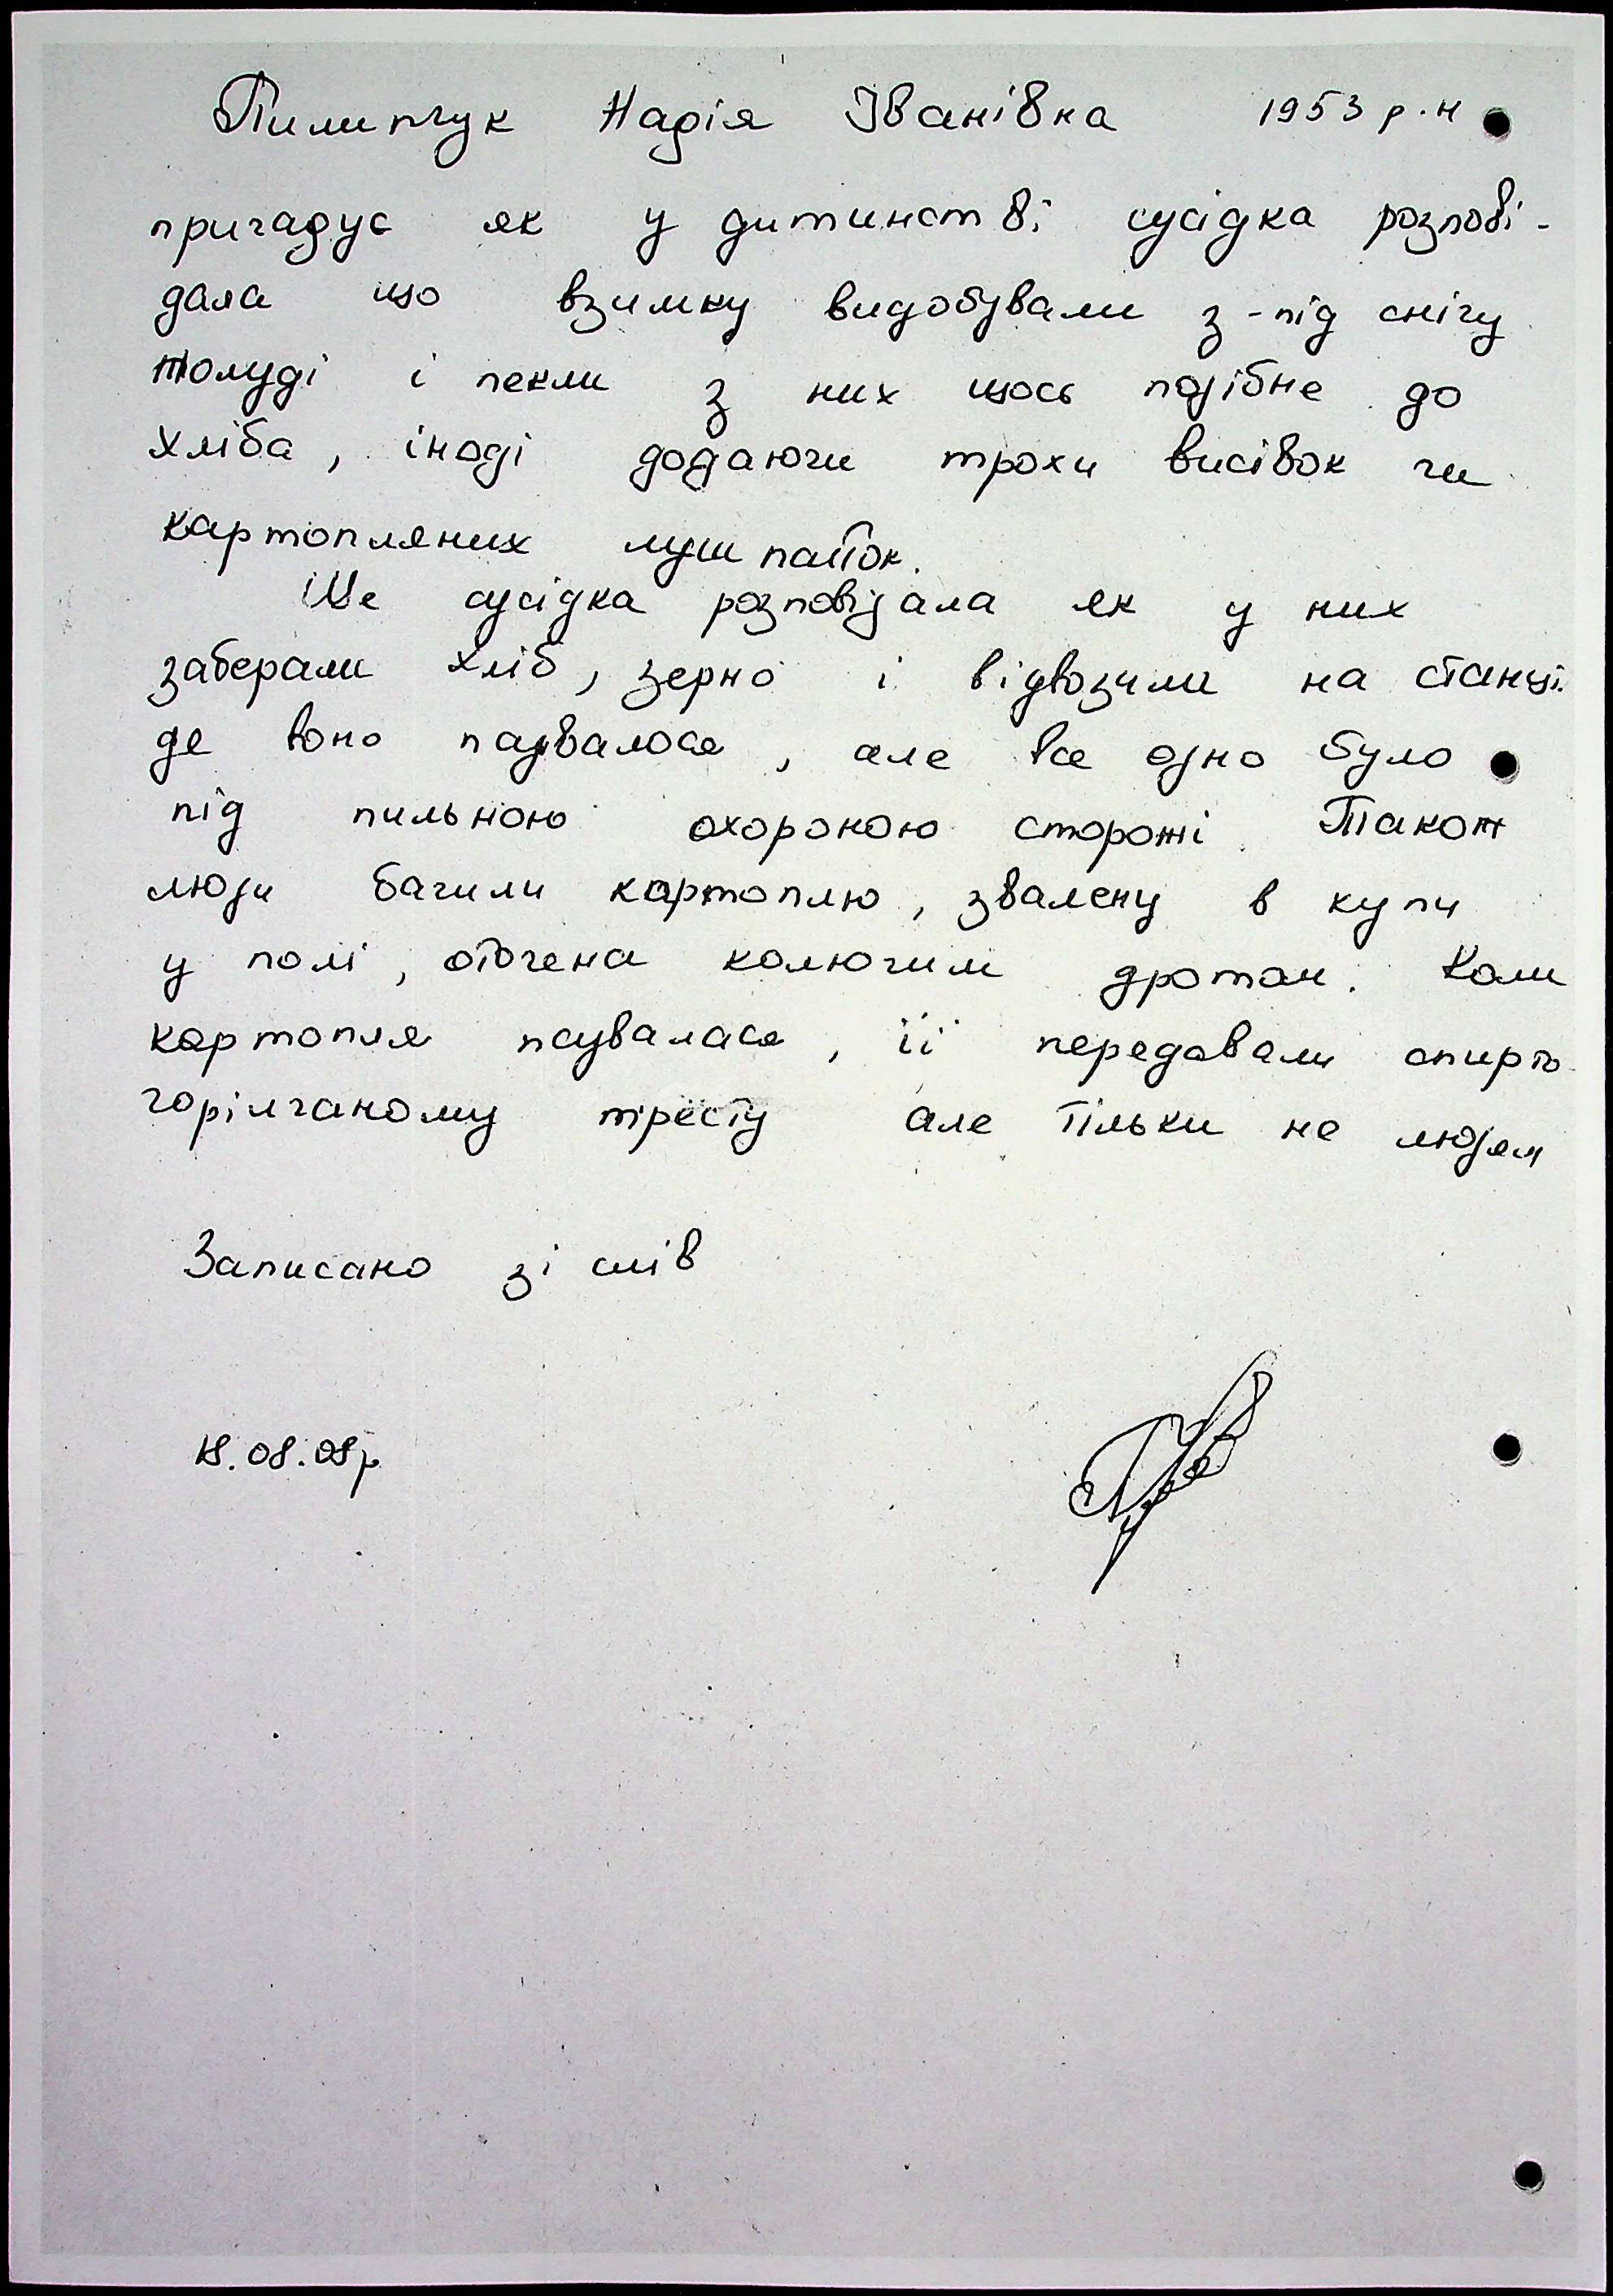 Пилипчук Надія Іванівна 1953 р.н
пригадує як у дитинстві сусідка розпові-
дала що взимку видобували з-під снігу
жолуді і пекли з них щось подібне до
хліба, іноді додаючи трохи висівок чи
картопляних лушпайок.
Ще сусідка розповідала як у них
заберали хліб, зерно і відвозили на станції
де воно псувалося, але все одно було
під пильною охороною сторожі. Також
люди бачили картоплю, звалену в купи
у полі, оточена колючим дротом. Коли
картопля псувалася, її передавали спирто-
горілчаному тресту але тільки не людям
Записано зі слів
18.08.08р